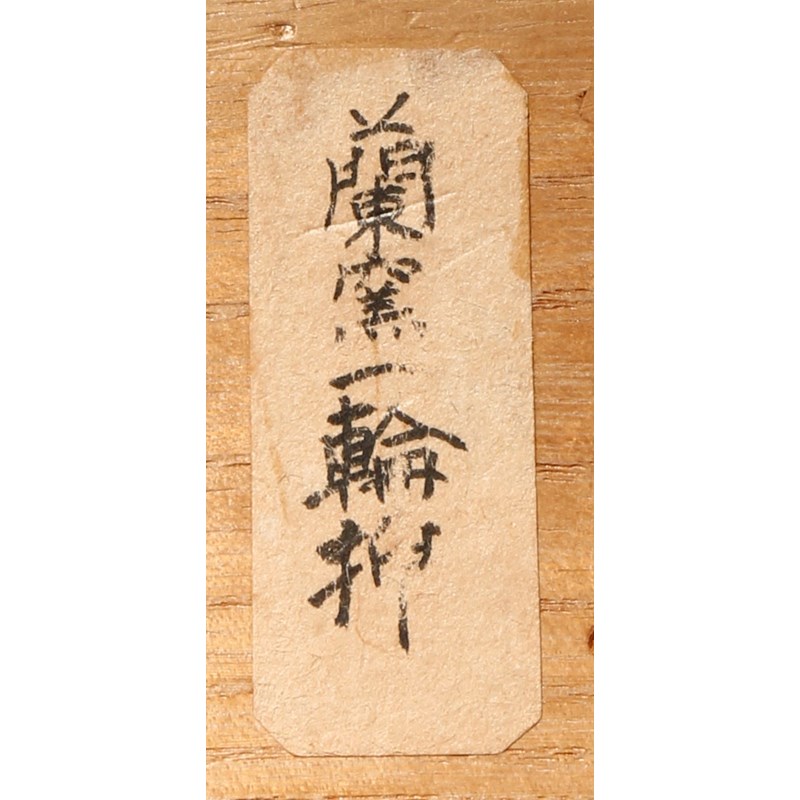 蘭窯一輪押